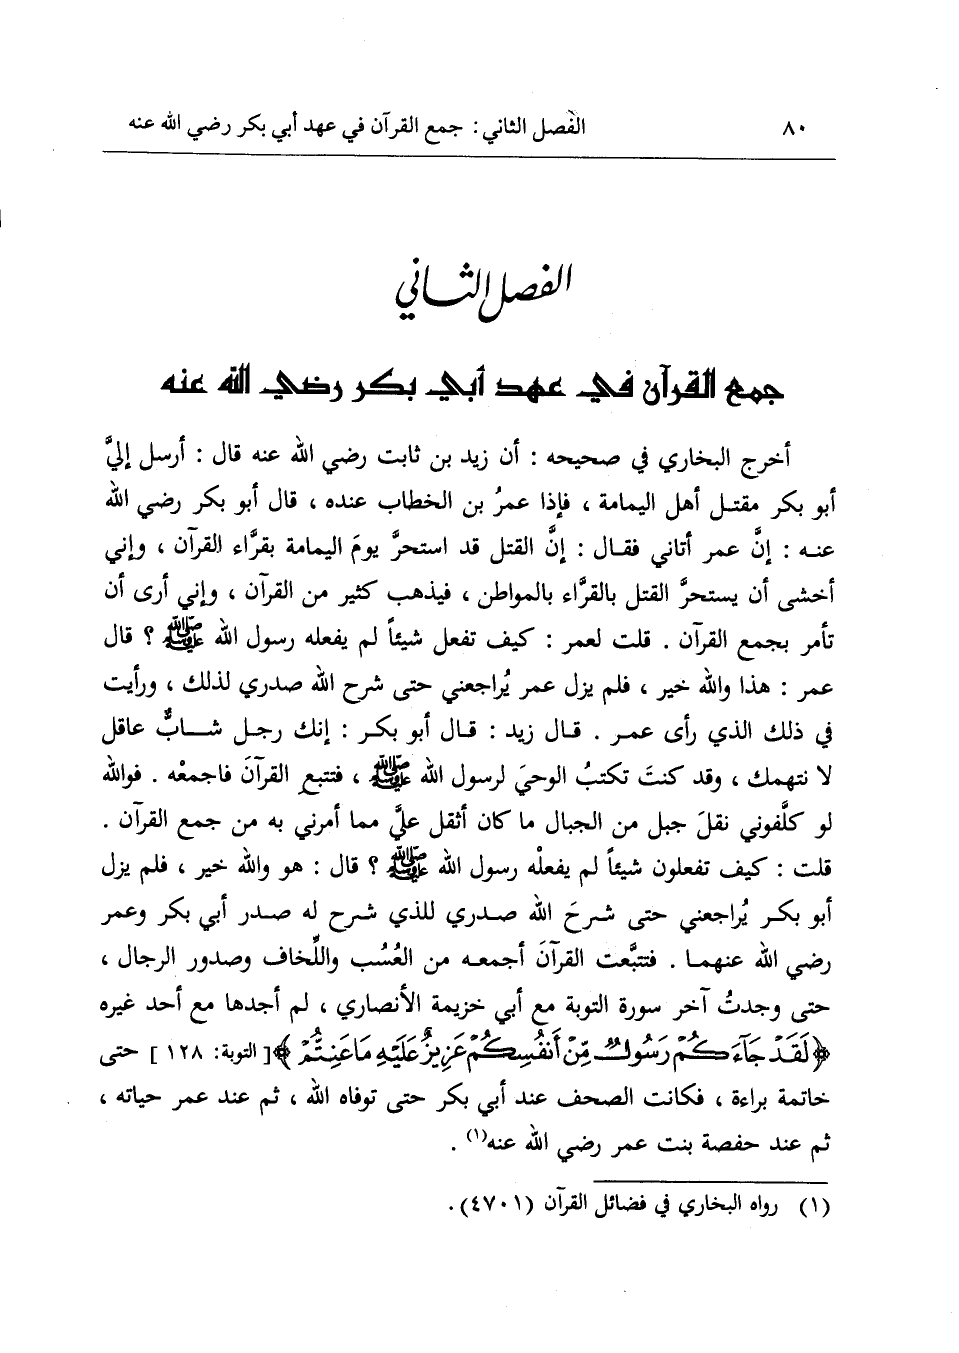 ٨٠ الفصل الثاني : جمع القرآن في عهد أبي بكر رضي الله عنه
الفصل الثاني
جمع القرآن في عهد أبي بكر رضي الله عنه
أخرج البخاري في صحيحه : أن زيد بن ثابت رضي الله عنه قال : أرسل إليَّ
أبو بكر مقتل أهل اليمامة ، فإذا عمرُ بن الخطاب عنده ، قال أبو بكر رضي الله
عنه : إنَّ عمر أتاني فقال : إنَّ القتل قد استحرَّ يومَ اليمامة بقرَّاء القرآن ، وإني
أخشى أن يستحرَّ القتل بالقرَّاء بالمواطن ، فيذهب كثير من القرآن ، وإني أرى أن
تأمر بجمع القرآن . قلت لعمر : كيف تفعل شيئاً لم يفعله رسول الله ﷺ ؟ قال
عمر : هذا والله خير ، فلم يزل عمر يُراجعني حتى شرح الله صدري لذلك ، ورأيت
في ذلك الذي رأى عمر . قال زيد : قال أبو بكر : إنك رجل شابٌّ عاقل
لا نتهمك ، وقد كنتَ تكتبُ الوحيَ لرسول الله ﷺ ، فتتبعِ القرآنَ فاجمعْه . فوالله
لو كلَّفوني نقلَ جبل من الجبال ما كان أثقل عليَّ مما أمرني به من جمع القرآن .
قلت : كيف تفعلون شيئاً لم يفعلْه رسول الله ﷺ ؟ قال : هو والله خير ، فلم يزل
أبو بكر يُراجعني حتى شرحَ الله صدري للذي شرح له صدر أبي بكر وعمر
رضي الله عنهما . فتتبَّعت القرآنَ أجمعه من العُسُب واللِّخاف وصدور الرجال ،
حتى وجدتُ آخر سورة التوبة مع أبي خزيمة الأنصاري ، لم أجدها مع أحد غيره
﴿لَقَدْ جَآءَكُمْ رَسُولٌ مِّنْ أَنفُسِكُمْ عَزِيزٌ عَلَيْهِ مَا عَنِتُّمْ﴾ [ التوبة: ١٢٨ ] حتى
خاتمة براءة ، فكانت الصحف عند أبي بكر حتى توفاه الله ، ثم عند عمر حياته ،
ثم عند حفصة بنت عمر رضي الله عنه(١) .
(١) رواه البخاري في فضائل القرآن (٤٧٠١).